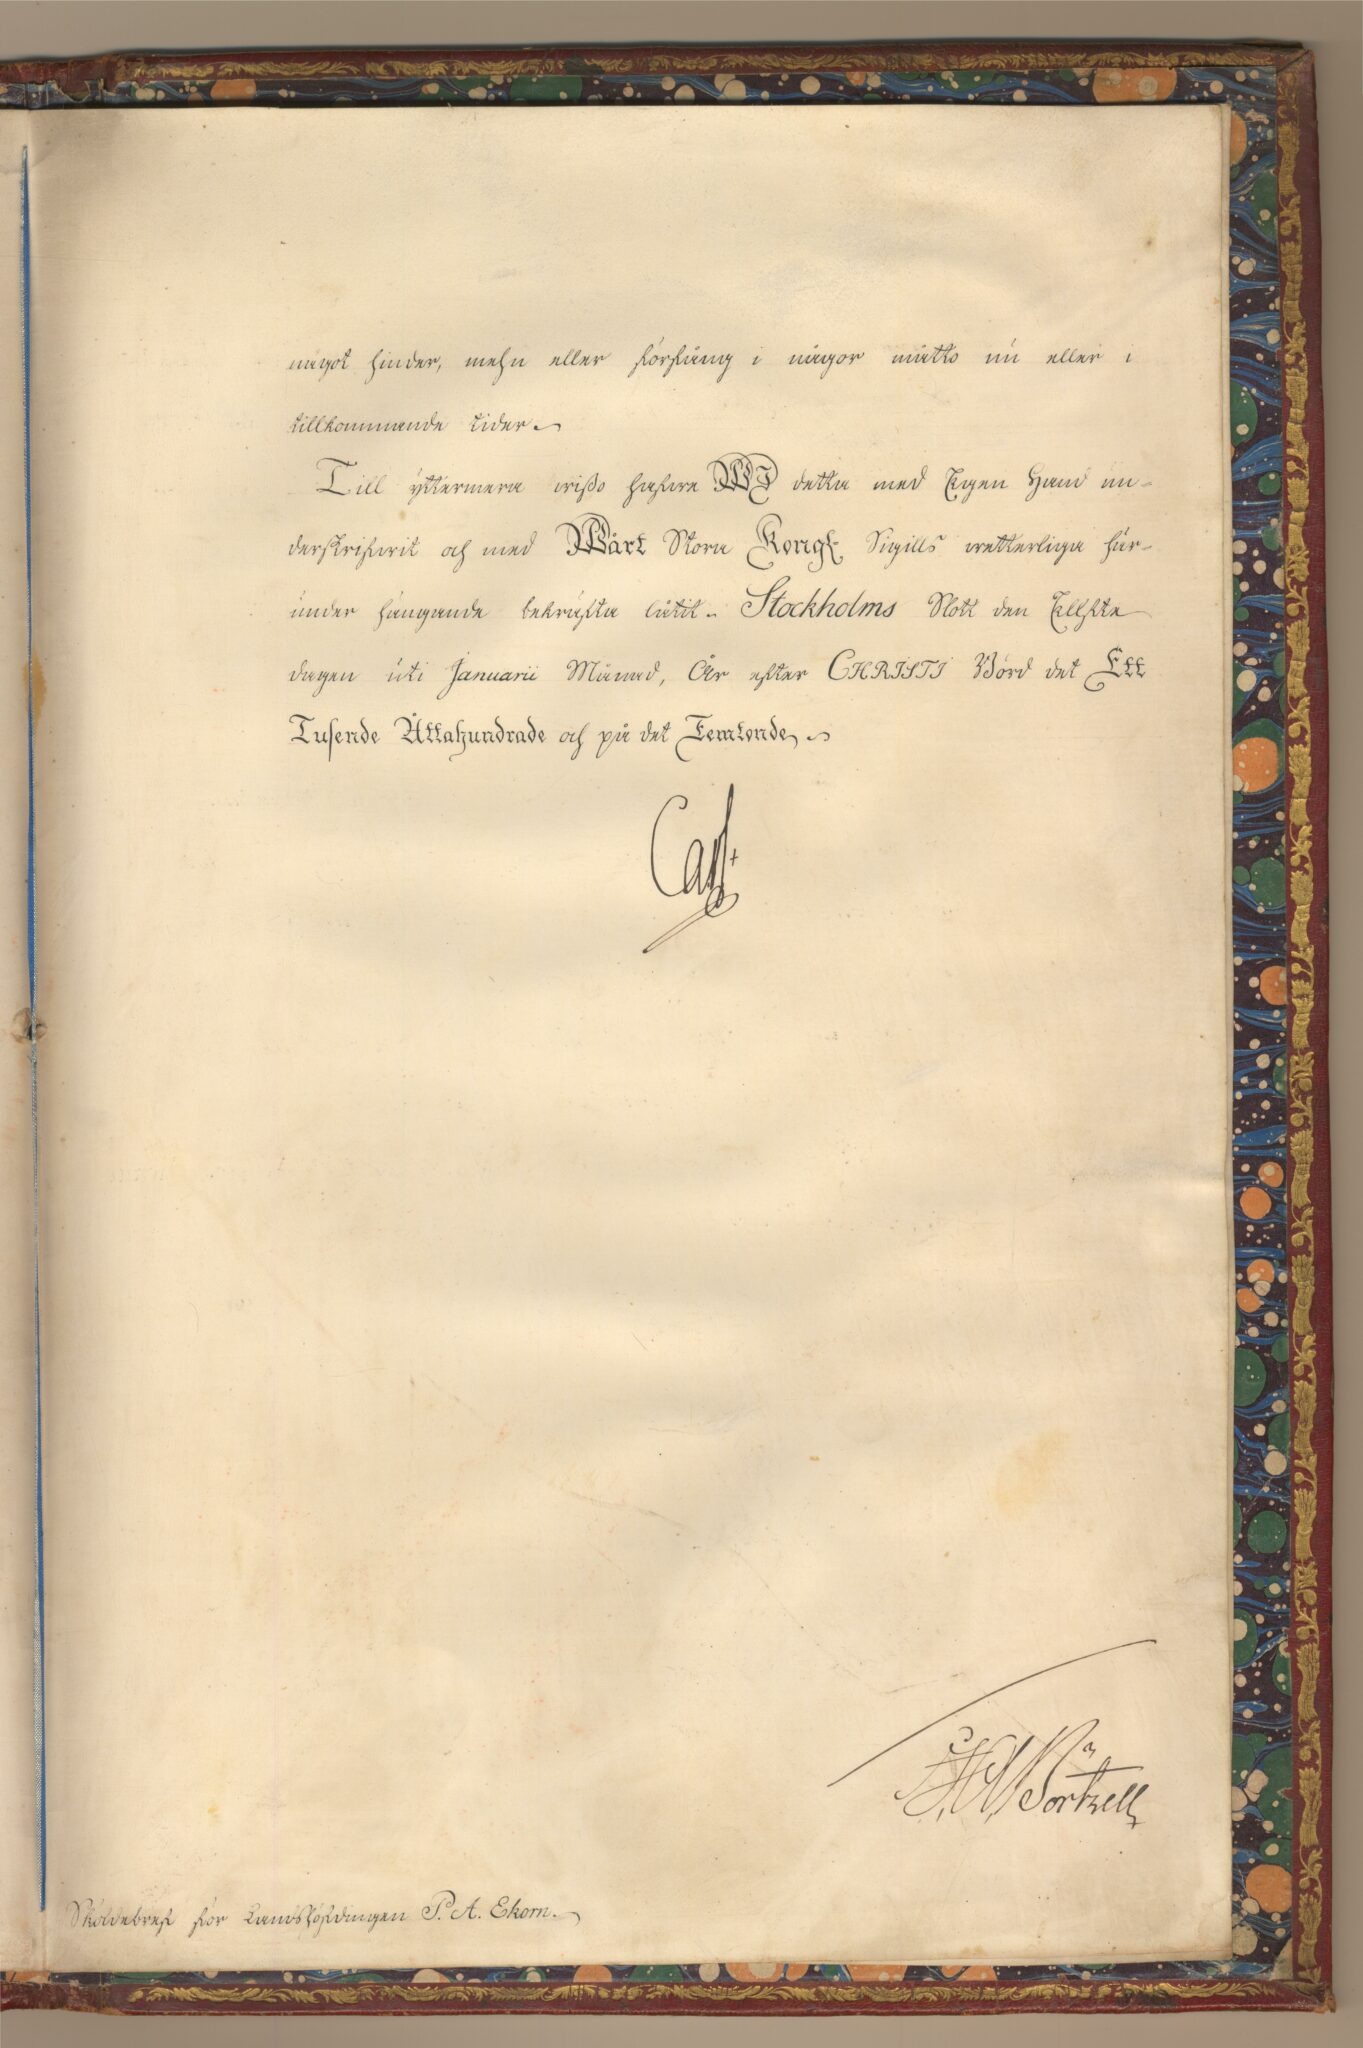 något hinder, mehn eller förfång i någor måtto nu eller i
tillkommande tider.
Till yttermera wißo hafwe WI detta med Egen Hand un-
derskrifwit och med Wårt Stora Kongl. Sigills wetterliga här-
under hängande bekräfta låtit. Stockholms Slott den Ellfte
dagen uti Januarii Månad, År efter CHRISTI Börd det Ett
Tusende Åttahundrade och på det Femtonde.
Carl
Skölde​bref för Landshöfdingen P. A. Ekorn.